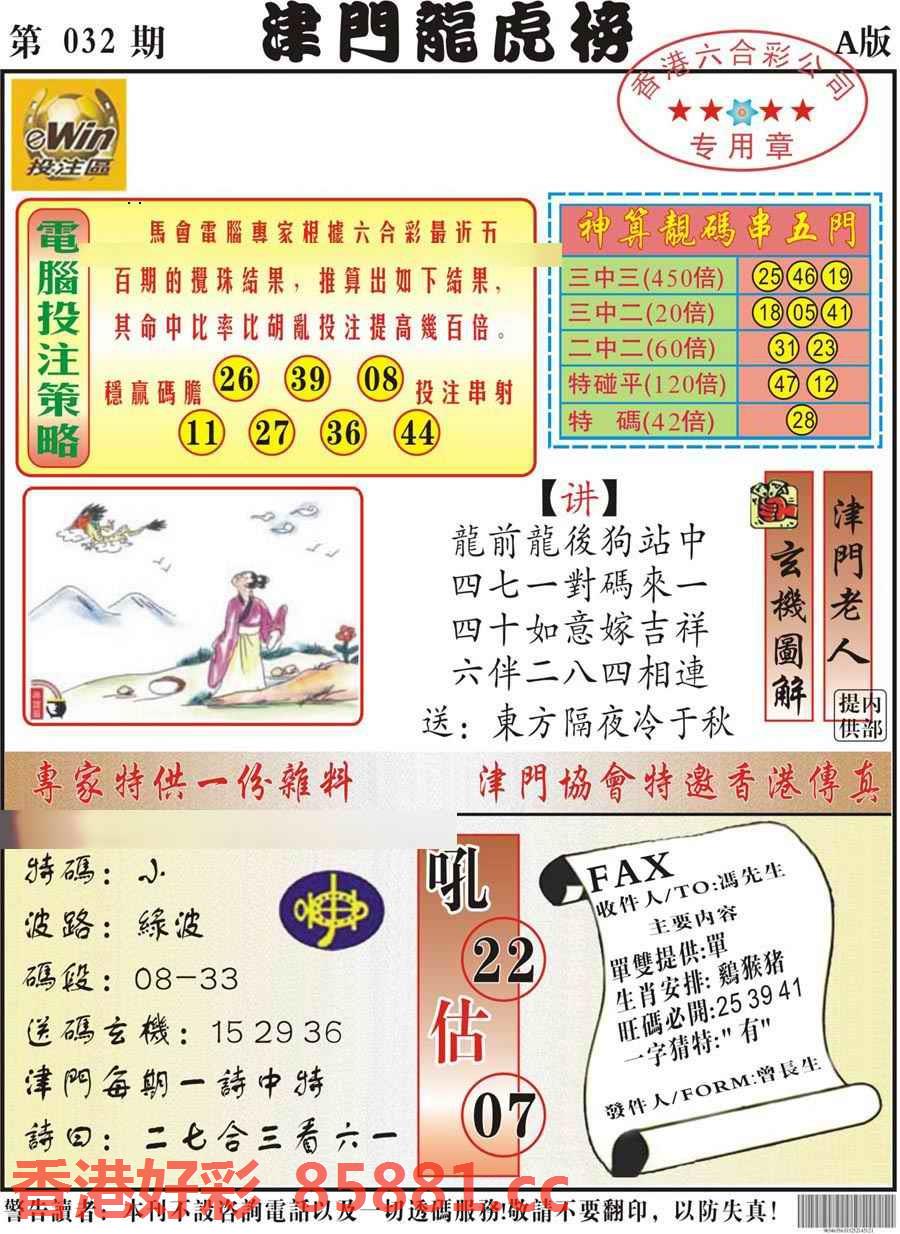 第 032 期
津門龍虎榜
A版
香港六合彩公司
专用章
eWin
投注區
電腦投注策略
馬會電腦專家根據六合彩最近五
百期的攪珠結果，推算出如下結果，
其命中比率比胡亂投注提高幾百倍。
穩贏碼膽 26 39 08 投注串射
11 27 36 44
神算靚碼串五門
三中三(450倍) 25 46 19
三中二(20倍) 18 05 41
二中二(60倍) 31 23
特碰平(120倍) 47 12
特 碼(42倍) 28
【讲】
龍前龍後狗站中
四七一對碼來一
四十如意嫁吉祥
六伴二八四相連
送：東方隔夜冷于秋
玄機圖解
津門老人
内部提供
專家特供一份雜料
津門協會特邀香港傳真
特碼：小
波路：綠波
碼段：08-33
送碼玄機：15 29 36
津門每期一詩中特
詩曰：二七合三看六一
吼
22
估
07
FAX
收件人/TO:馮先生
主要内容
單雙提供:單
生肖安排: 鷄猴猪
旺碼必開:25 39 41
一字猜特:" 有"
發件人/FORM:曾長生
香港好彩 85881.cc
警告讀者：本刊不設咨詢電話以及一切透碼服務!敬請不要翻印，以防失真!